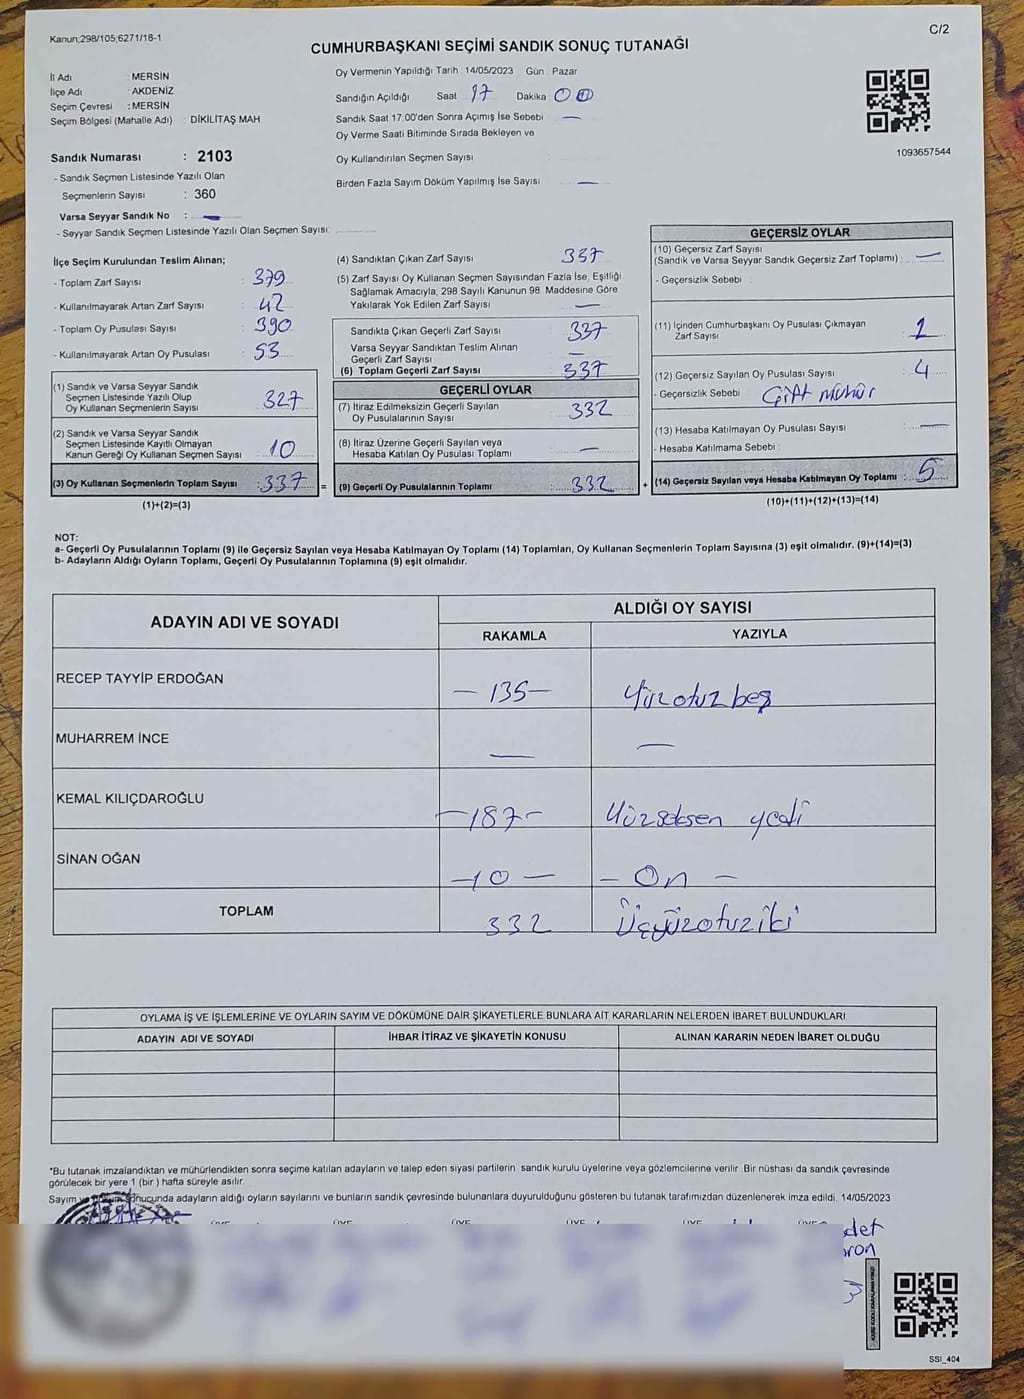 Kanun;298/105;6271/18-1
C/2
CUMHURBAŞKANI SEÇİMİ SANDIK SONUÇ TUTANAĞI
İl Adı : MERSİN
İlçe Adı : AKDENİZ
Seçim Çevresi : MERSİN
Seçim Bölgesi (Mahalle Adı) : DİKİLİTAŞ MAH.
Sandık Numarası : 2103
- Sandık Seçmen Listesinde Yazılı Olan
Seçmenlerin Sayısı : 360
Varsa Seyyar Sandık No : —
- Seyyar Sandık Seçmen Listesinde Yazılı Olan Seçmen Sayısı:
Oy Vermenin Yapıldığı Tarih :14/05/2023 Gün : Pazar
Sandığın Açıldığı Saat 17 Dakika 00
Sandık Saat 17:00'den Sonra Açımış İse Sebebi : —
Oy Verme Saati Bitiminde Sırada Bekleyen ve
Oy Kullandırılan Seçmen Sayısı :
Birden Fazla Sayım Döküm Yapılmış İse Sayısı : —
1093657544
İlçe Seçim Kurulundan Teslim Alınan;
- Toplam Zarf Sayısı : 379
- Kullanılmayarak Artan Zarf Sayısı : 42
- Toplam Oy Pusulası Sayısı : 390
- Kullanılmayarak Artan Oy Pusulası : 53
(1) Sandık ve Varsa Seyyar Sandık
Seçmen Listesinde Yazılı Olup
Oy Kullanan Seçmenlerin Sayısı : 327
(2) Sandık ve Varsa Seyyar Sandık
Seçmen Listesinde Kayıtlı Olmayan
Kanun Gereği Oy Kullanan Seçmen Sayısı : 10
(3) Oy Kullanan Seçmenlerin Toplam Sayısı : 337 =
(1)+(2)=(3)
(4) Sandıktan Çıkan Zarf Sayısı : 337
(5) Zarf Sayısı Oy Kullanan Seçmen Sayısından Fazla İse, Eşitliği
Sağlamak Amacıyla, 298 Sayılı Kanunun 98. Maddesine Göre
Yakılarak Yok Edilen Zarf Sayısı : —
Sandıkta Çıkan Geçerli Zarf Sayısı : 337
Varsa Seyyar Sandıktan Teslim Alınan
Geçerli Zarf Sayısı : —
(6) Toplam Geçerli Zarf Sayısı : 337
GEÇERLİ OYLAR
(7) İtiraz Edilmeksizin Geçerli Sayılan
Oy Pusulalarının Sayısı : 332
(8) İtiraz Üzerine Geçerli Sayılan veya
Hesaba Katılan Oy Pusulası Toplamı : —
(9) Geçerli Oy Pusulalarının Toplamı : 332 +
GEÇERSİZ OYLAR
(10) Geçersiz Zarf Sayısı
(Sandık ve Varsa Seyyar Sandık Geçersiz Zarf Toplamı) : —
- Geçersizlik Sebebi :
(11) İçinden Cumhurbaşkanı Oy Pusulası Çıkmayan
Zarf Sayısı : 1
(12) Geçersiz Sayılan Oy Pusulası Sayısı : 4
- Geçersizlik Sebebi : Çift mühür
(13) Hesaba Katılmayan Oy Pusulası Sayısı : —
- Hesaba Katılmama Sebebi :
(14) Geçersiz Sayılan veya Hesaba Katılmayan Oy Toplamı : 5
(10)+(11)+(12)+(13)=(14)
NOT:
a- Geçerli Oy Pusulalarının Toplamı (9) ile Geçersiz Sayılan veya Hesaba Katılmayan Oy Toplamı (14) Toplamları, Oy Kullanan Seçmenlerin Toplam Sayısına (3) eşit olmalıdır. (9)+(14)=(3)
b- Adayların Aldığı Oyların Toplamı, Geçerli Oy Pusulalarının Toplamına (9) eşit olmalıdır.
ADAYIN ADI VE SOYADI
ALDIĞI OY SAYISI
RAKAMLA YAZIYLA
RECEP TAYYİP ERDOĞAN — 135 — Yüzotuz beş
MUHARREM İNCE — —
KEMAL KILIÇDAROĞLU — 187 — Yüzseksen yedi
SİNAN OĞAN — 10 — — On —
TOPLAM 332 Üçyüzotuziki
OYLAMA İŞ VE İŞLEMLERİNE VE OYLARIN SAYIM VE DÖKÜMÜNE DAİR ŞİKAYETLERLE BUNLARA AİT KARARLARIN NELERDEN İBARET BULUNDUKLARI
ADAYIN ADI VE SOYADI İHBAR İTİRAZ VE ŞİKAYETİN KONUSU ALINAN KARARIN NEDEN İBARET OLDUĞU
*Bu tutanak imzalandıktan ve mühürlendikten sonra seçime katılan adayların ve talep eden siyasi partilerin sandık kurulu üyelerine veya gözlemcilerine verilir. Bir nüshası da sandık çevresinde
görülecek bir yere 1 (bir) hafta süreyle asılır.
Sayım sonucunda adayların aldığı oyların sayılarını ve bunların sandık çevresinde bulunanlara duyurulduğunu gösteren bu tutanak tarafımızdan düzenlenerek imza edildi. 14/05/2023
ÜYE ÜYE ÜYE ÜYE
SSI_404